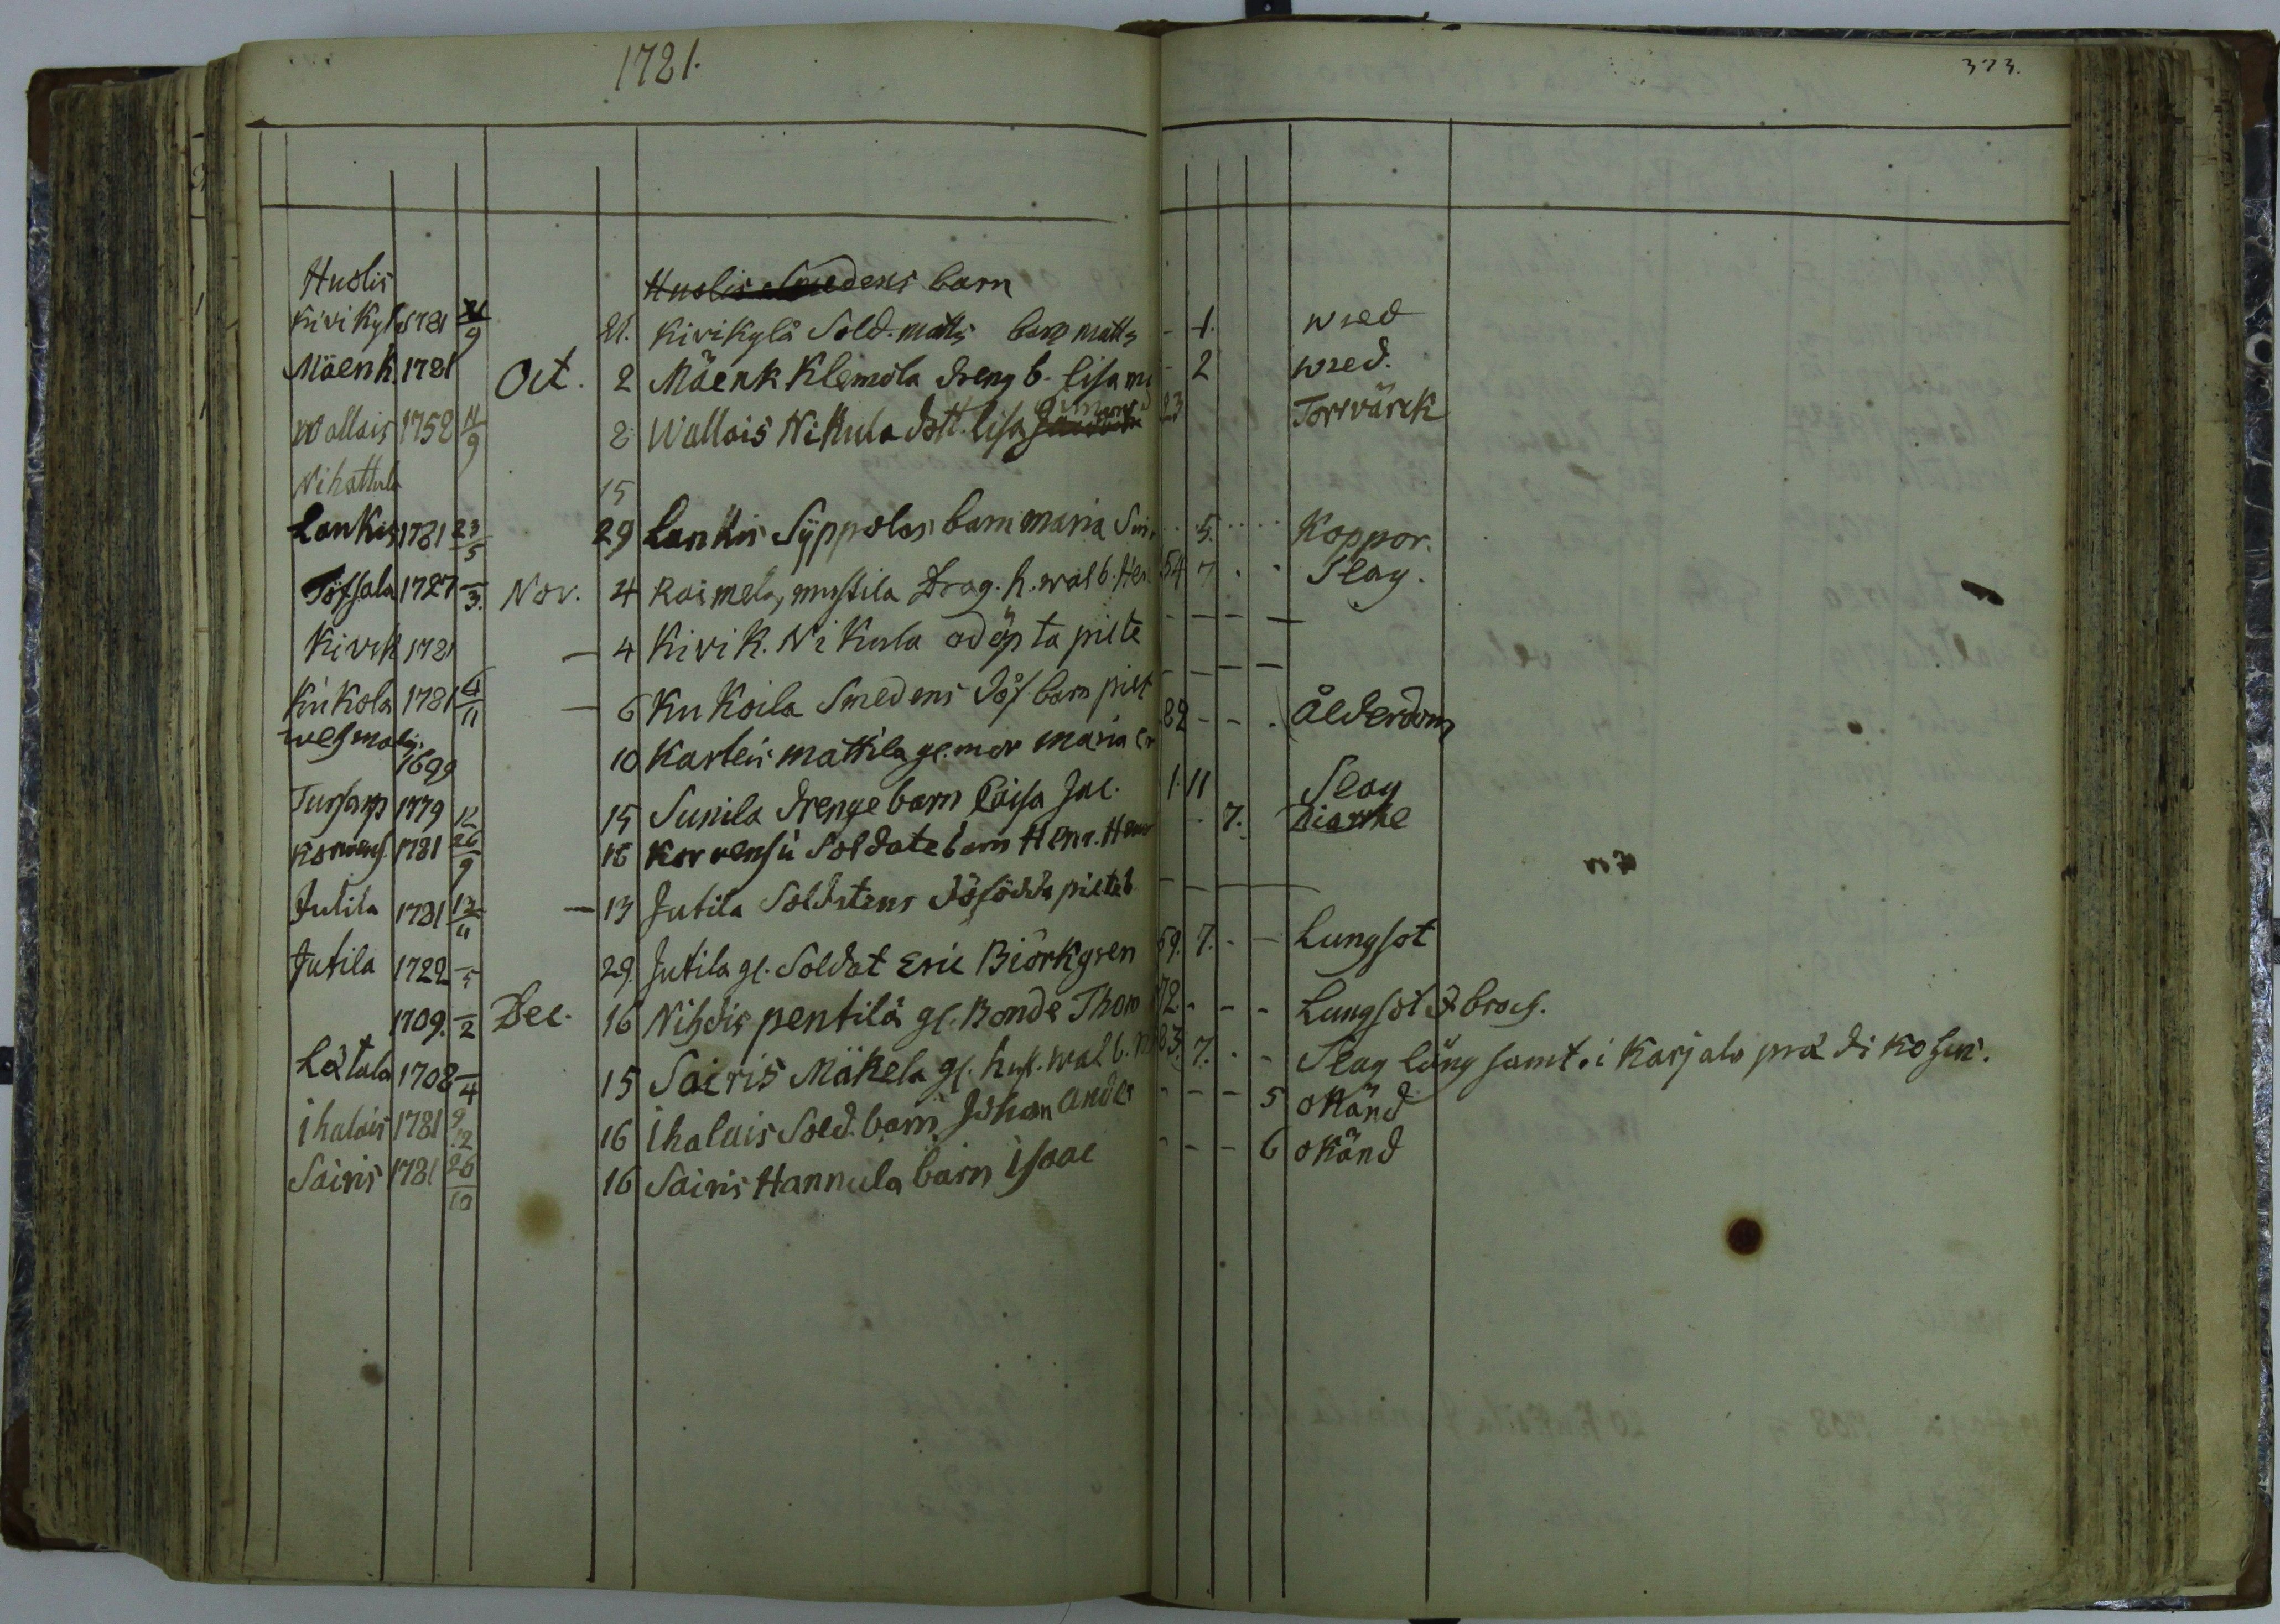 1781.
323.
Huolis Huolis Smedens barn
Kivikylä 1781 21/9 21. Kivikylä Sold. Matts barn Matts - 1. wred
Mäenk. 1781 Oct. 2 Mäenk Klemola dreng b. Lisa - 2 wred.
Wallais 1758 11/9 2 Wallais Nikula dott. Lisa 23 Torrvärck
Nihattula 15
Lankis 1781 23/5 29 Lankis Syppolas barn Maria 5. Koppor.
1727 -/3. Nov. 4 Raimela, Mustila Drag. h. wal b. 54 7 Slag.
Kivik 1781 - 4 Kivik. Nikula odöpta pilte - - - -
Kukola 1781 4/11 - 6 Kukoila Smedens döf. barn pilt - - - -
1699 10 Karleis Mattila gl. mor Maria 82 - - Ålderdom
1779 12 15 Sunila drenge barn Caisa Jac. 1. 11 Slag
1781 26/9 18 Korvensu Soldate barn Henr. - 7. diarrhe
Jutila 1781 13/11 - 13 Jutila Soldatens döfödda pilteb. - - -
Jutila 1722 -/5 29. Jutila gl. Soldat Eric Biörkgren 59. 7. - - Lungsot
1709. -/2 Dec. 16 Nihdis Pentilä gl. Bonde Thom 72. - - - Lungsot & broch.
Lätala 1708 -/4 15 Sairis Mäkela gl. hust. wal b. 83. 7. - - Slag läng samt. i Karjala
Ihalais 1781 9/12 16 Ihalais Sold. barn Johan Anders - - - 5 okänd
Sairis 1781 26/10 16 Sairis Hannula barn Isaac - - - 6 okänd